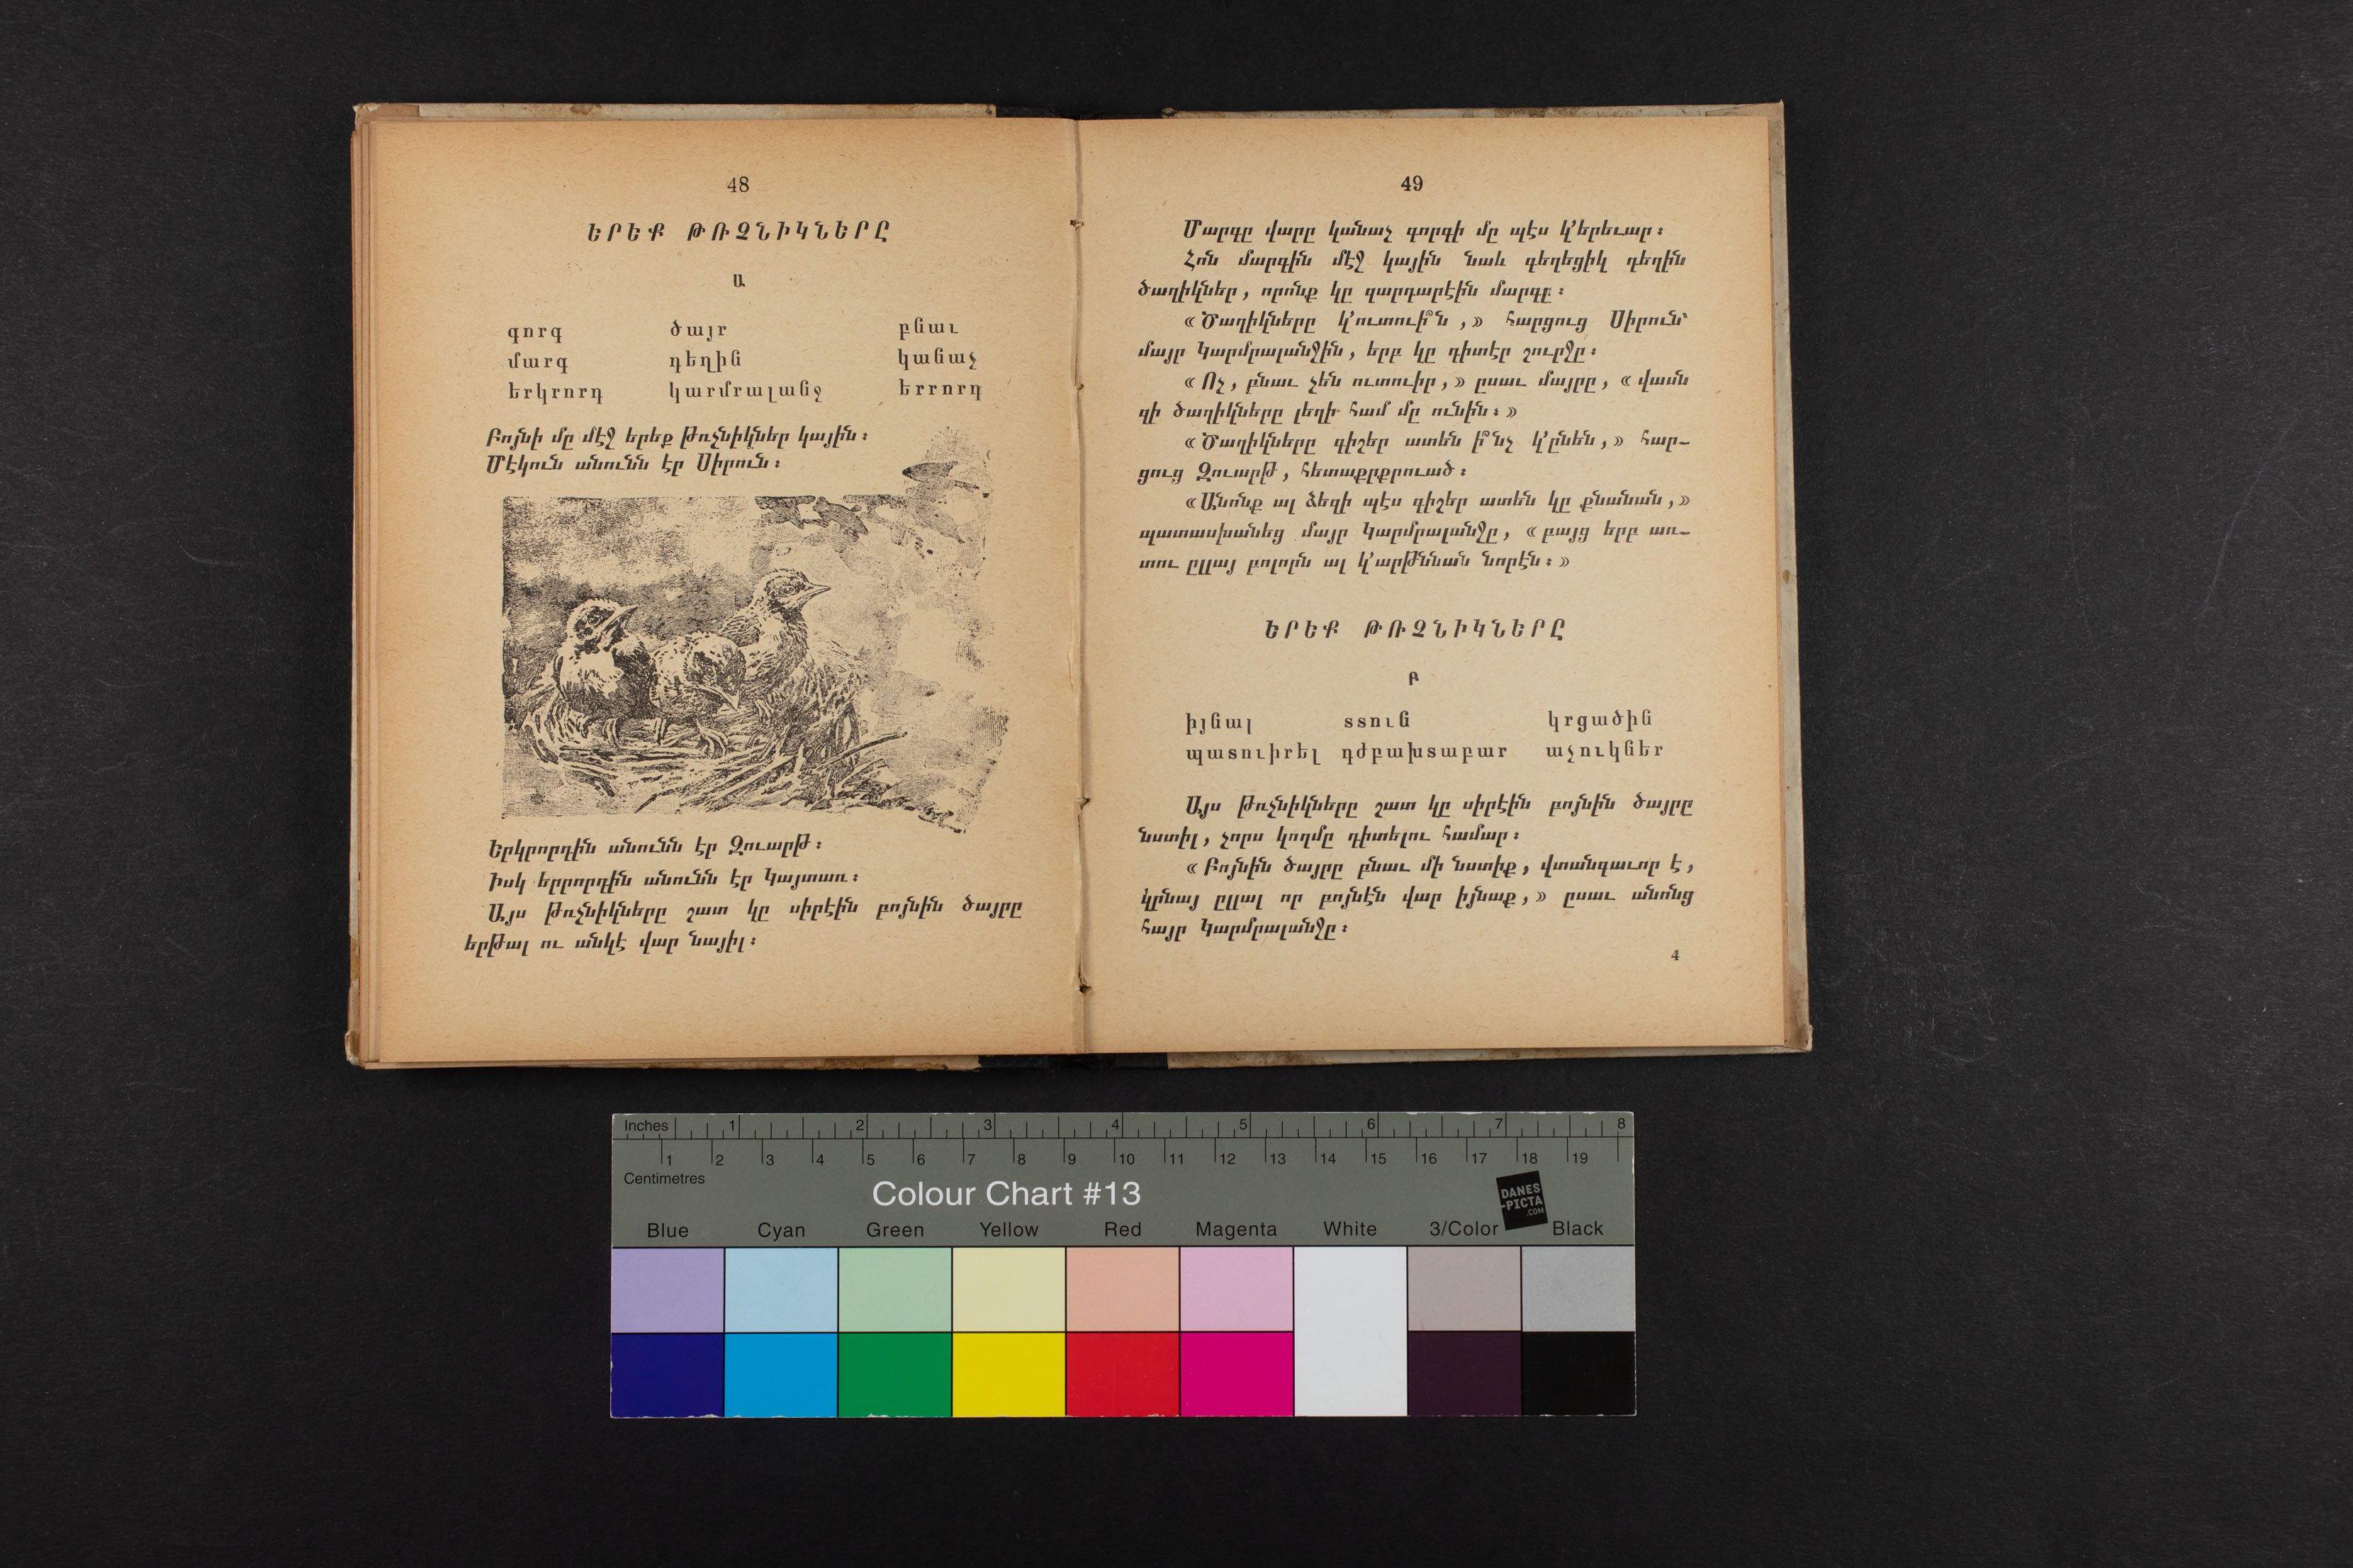 48
ԵՐԵՔ ԹՌՉՆԻԿՆԵՐԸ
Ա
գորգ ծայր բնաւ
մարգ դեղին կանաչ
երկրորդ կարմրալանջ երրորդ
Բոյնի մը մէջ երեք թռչնիկներ կային։
Մէկուն անունն էր Սիրուն։
Երկրորդին անունն էր Զուարթ։
Իսկ երրորդին անունն էր Կայտառ։
Այս թռչնիկները շատ կը սիրէին բոյնին ծայրը
երթալ ու անկէ վար նայիլ։
49
Մարգը վարը կանաչ գորգի մը պէս կ՚երեւար։
Հոն մարգին մէջ կային նաև գեղեցիկ դեղին
ծաղիկներ, որոնք կը զարդարէին մարգը։
«Ծաղիկները կ՚ուտուի՞ն,» հարցուց Սիրուն՝
մայր Կարմրալանջին, երբ կը դիտէր շուրջը։
«Ոչ, բնաւ չեն ուտուիր,» ըսաւ մայրը, «վասն
զի ծաղիկները լեղի համ մը ունին։»
«Ծաղիկները գիշեր ատեն ի՞նչ կ՚ընեն,» հար-
ցուց Զուարթ, հետաքրքրուած։
«Անոնք ալ ձեզի պէս գիշեր ատեն կը քնանան,»
պատասխանեց մայր Կարմրալանջը, «բայց երբ առ-
տու ըլլայ բոլորն ալ կ՚արթննան նորէն։»
ԵՐԵՔ ԹՌՉՆԻԿՆԵՐԸ
Բ
իյնալ տտուն կրցածին
պատուիրել դժբախտաբար աչուկներ
Այս թռչնիկները շատ կը սիրէին բոյնին ծայրը
նստիլ, չորս կողմը դիտելու համար։
«Բոյնին ծայրը բնաւ մի նստիք, վտանգաւոր է,
կրնայ ըլլալ որ բոյնէն վար իյնաք,» ըսաւ անոնց
հայր Կարմրալանջը։
4
Inches 1 2 3 4 5 6 7 8
1 2 3 4 5 6 7 8 9 10 11 12 13 14 15 16 17 18 19
Centimetres
Colour Chart #13
DANES
-PICTA
.COM
Blue Cyan Green Yellow Red Magenta White 3/Color Black